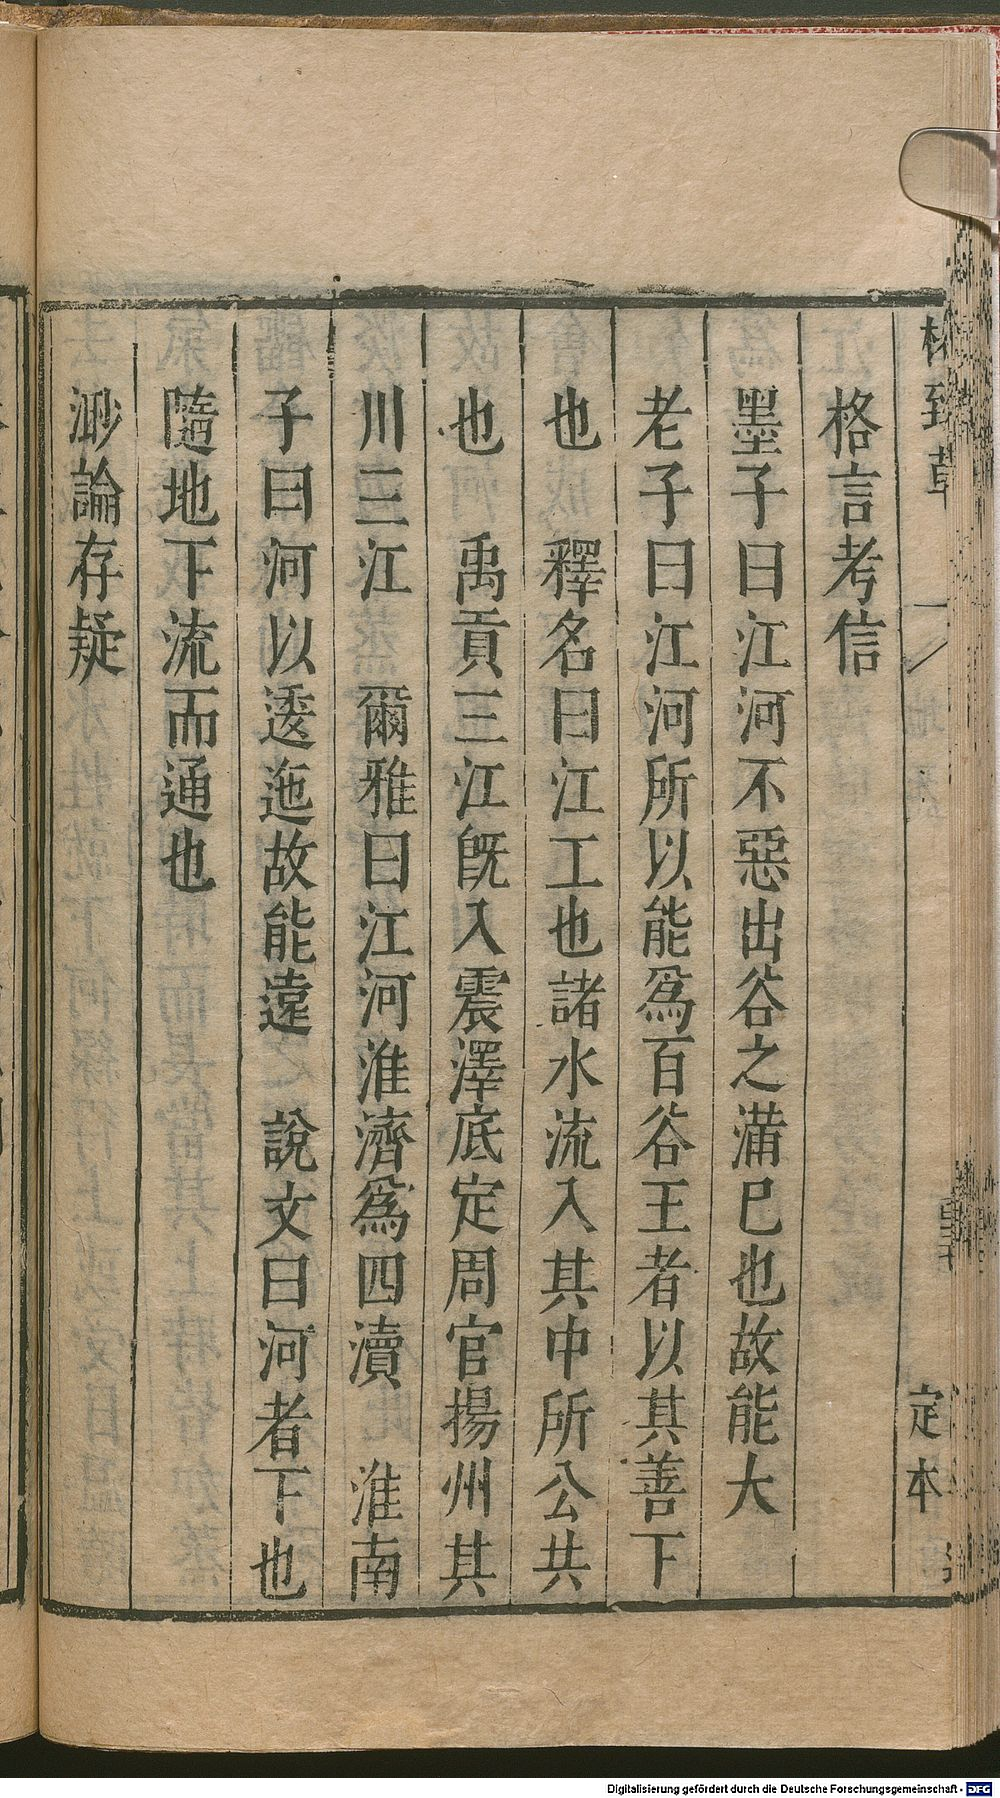 格致草
定本
格言考信
墨子曰江河不惡出谷之滿已也故能大
老子曰江河所以能爲百谷王者以其善下
也　釋名曰江工也諸水流入其中所公共
也　禹貢三江旣入震澤底定周官揚州其
川三江　爾雅曰江河淮濟爲四瀆　淮南
子曰河以逶迤故能遠　說文曰河者下也
隨地下流而通也
渺論存疑
Digitalisierung gefördert durch die Deutsche Forschungsgemeinschaft - DFG